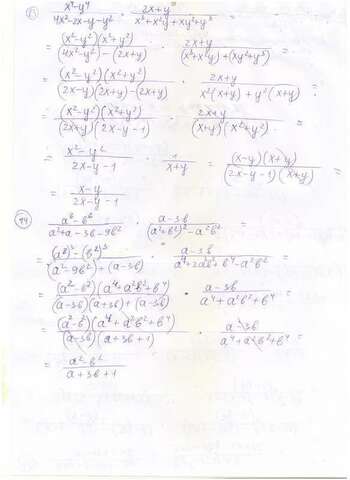 x⁴-y⁴ / 4x²-2x-y-y² · 2x+y / x³+x²y+xy²+y³ =
= (x²-y²)(x²+y²) / (4x²-y²)-(2x+y) · 2x+y / (x³+x²y)+(xy²+y³) =
= (x²-y²)(x²+y²) / (2x-y)(2x+y)-(2x+y) · 2x+y / x²(x+y)+y²(x+y) =
= (x²-y²)(x²+y²) / (2x+y)(2x-y-1) · 2x+y / (x+y)(x²+y²) =
= x²-y² / 2x-y-1 · 1 / x+y = (x-y)(x+y) / (2x-y-1)(x+y) =
= x-y / 2x-y-1
44 a⁶-b⁶ / a²+a-3b-9b² · a-3b / (a²+b²)²-a²b² =
= (a²)³-(b²)³ / (a²-9b²)+(a-3b) · a-3b / a⁴+2a²b²+b⁴-a²b² =
= (a²-b²)(a⁴+a²b²+b⁴) / (a-3b)(a+3b)+(a-3b) · a-3b / a⁴+a²b²+b⁴ =
= (a²-b²)(a⁴+a²b²+b⁴) / (a-3b)(a+3b+1) · a-3b / a⁴+a²b²+b⁴ =
= a²-b² / a+3b+1